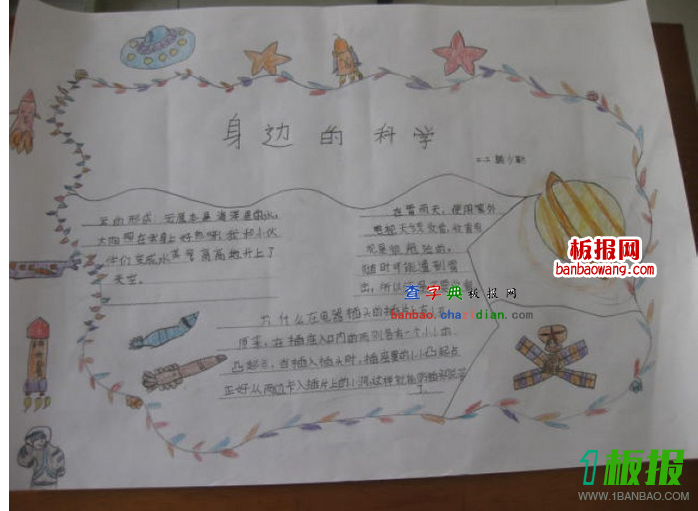 身边的科学
二.二
云的形成 云原本是海洋里的水。
太阳照在
们变成水蒸气高高地升上了
天空。
在雷雨天，使用室外
电视天线收看，收看电
视是很危险的。
随时可能遭到雷
击，所以
为什么在电器插头的插片上有小孔
原来，在插座入口内的两侧各有一个小小的
凸起点，当插入插头时，插座里的小凸起点
正好从两边卡入插片上的小洞，这样就能
了。
板报网
banbaowang.com
查字典板报网
banbao.chazidian.com
1板报
WWW.1BANBAO.COM